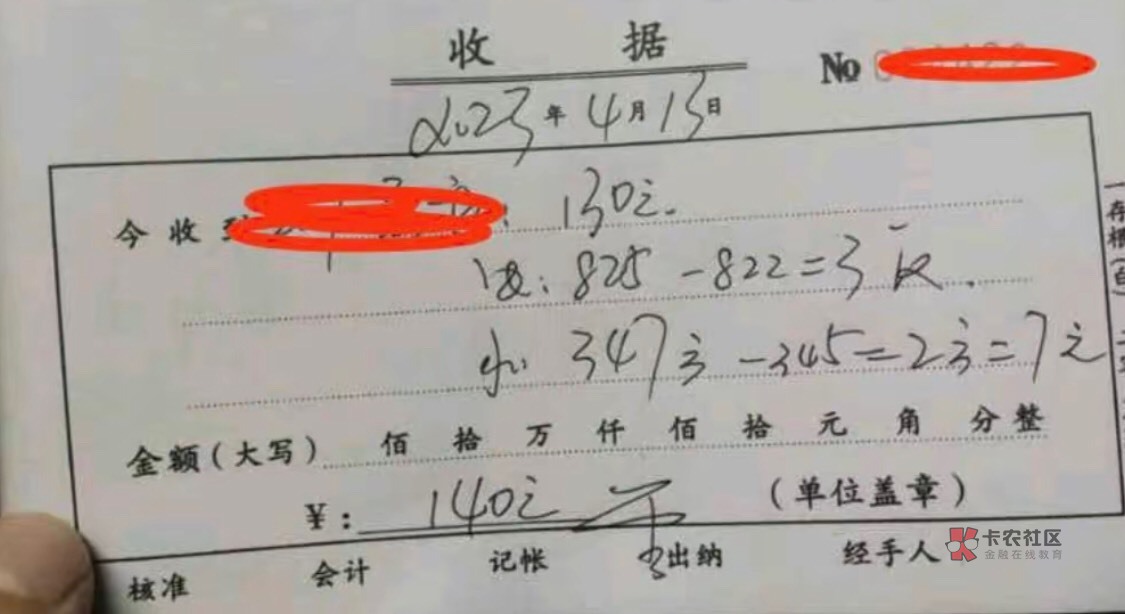 收 据
No
2023年4月13日
今收到 130元.
电: 825-822=3度.
水 347方-345=2方=7元
金额(大写) 佰 拾 万 仟 佰 拾 元 角 分 整
¥: 140元 (单位盖章)
核准 会计 记帐 出纳 经手人
卡农社区
金融在线教育